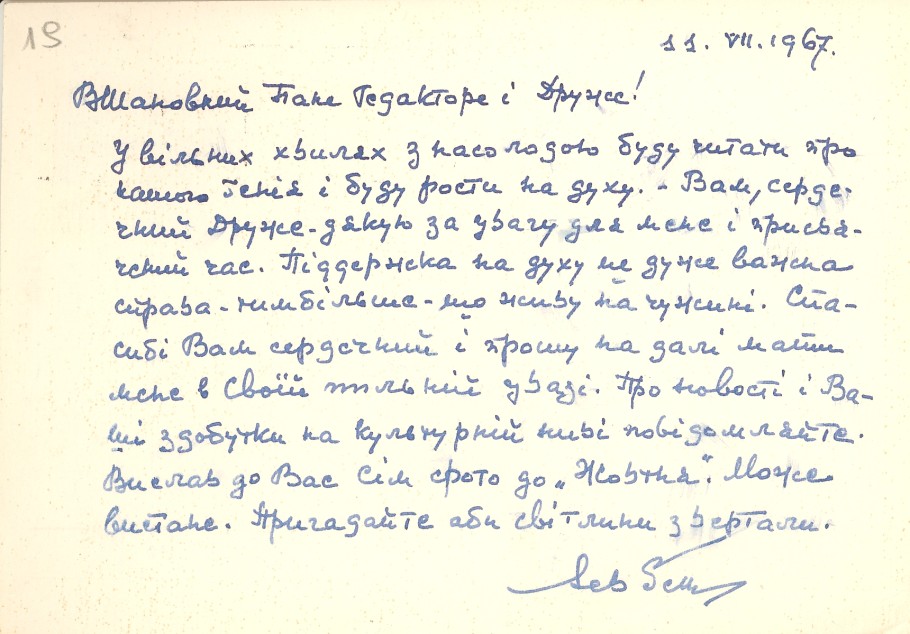 19
11. VII. 1967.
ВШановний Пане Редакторе і Друже!
У вільних хвилях з насолодою буду читати про
нашого Генія і буду рости на духу. - Вам, серде-
чний Друже - дякую за увагу для мене і присвя-
чений час. Піддержка на духу це дуже важна
справа - тимбільше - що живу на чужині. Спа-
сибі Вам сердечний і прошу на далі мати
мене в Своїй пильній увазі. Про новості і Ва-
ші здобутки на культурній ниві повідомляйте.
Вислав до Вас Сім фото до „Жовтня". Може
вистане. Пригадайте аби світлини звертали.
Лев